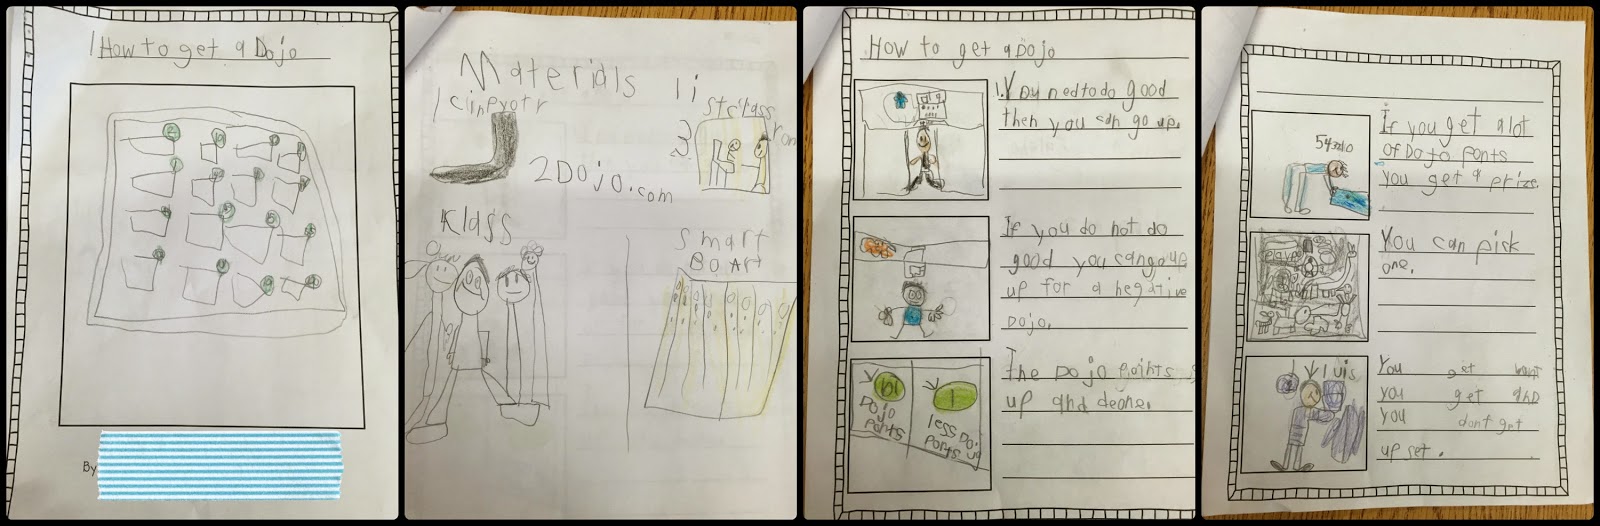 How to get a Dojo
By
Materials
1 cinpyotr
2Dojo.com
3
Klass
smart
BOArt
How to get a Dojo
1. You ned to do good
then you can go up.
If you do not do
good you can go up
up for a negative
Dojo.
The Dojo points
up and
DoJo
Points
less Doj
Points
If you get a lot
of Dojo ponts
you get a prize.
You can pick
one.
You get what
you get and
you dont get
up set.